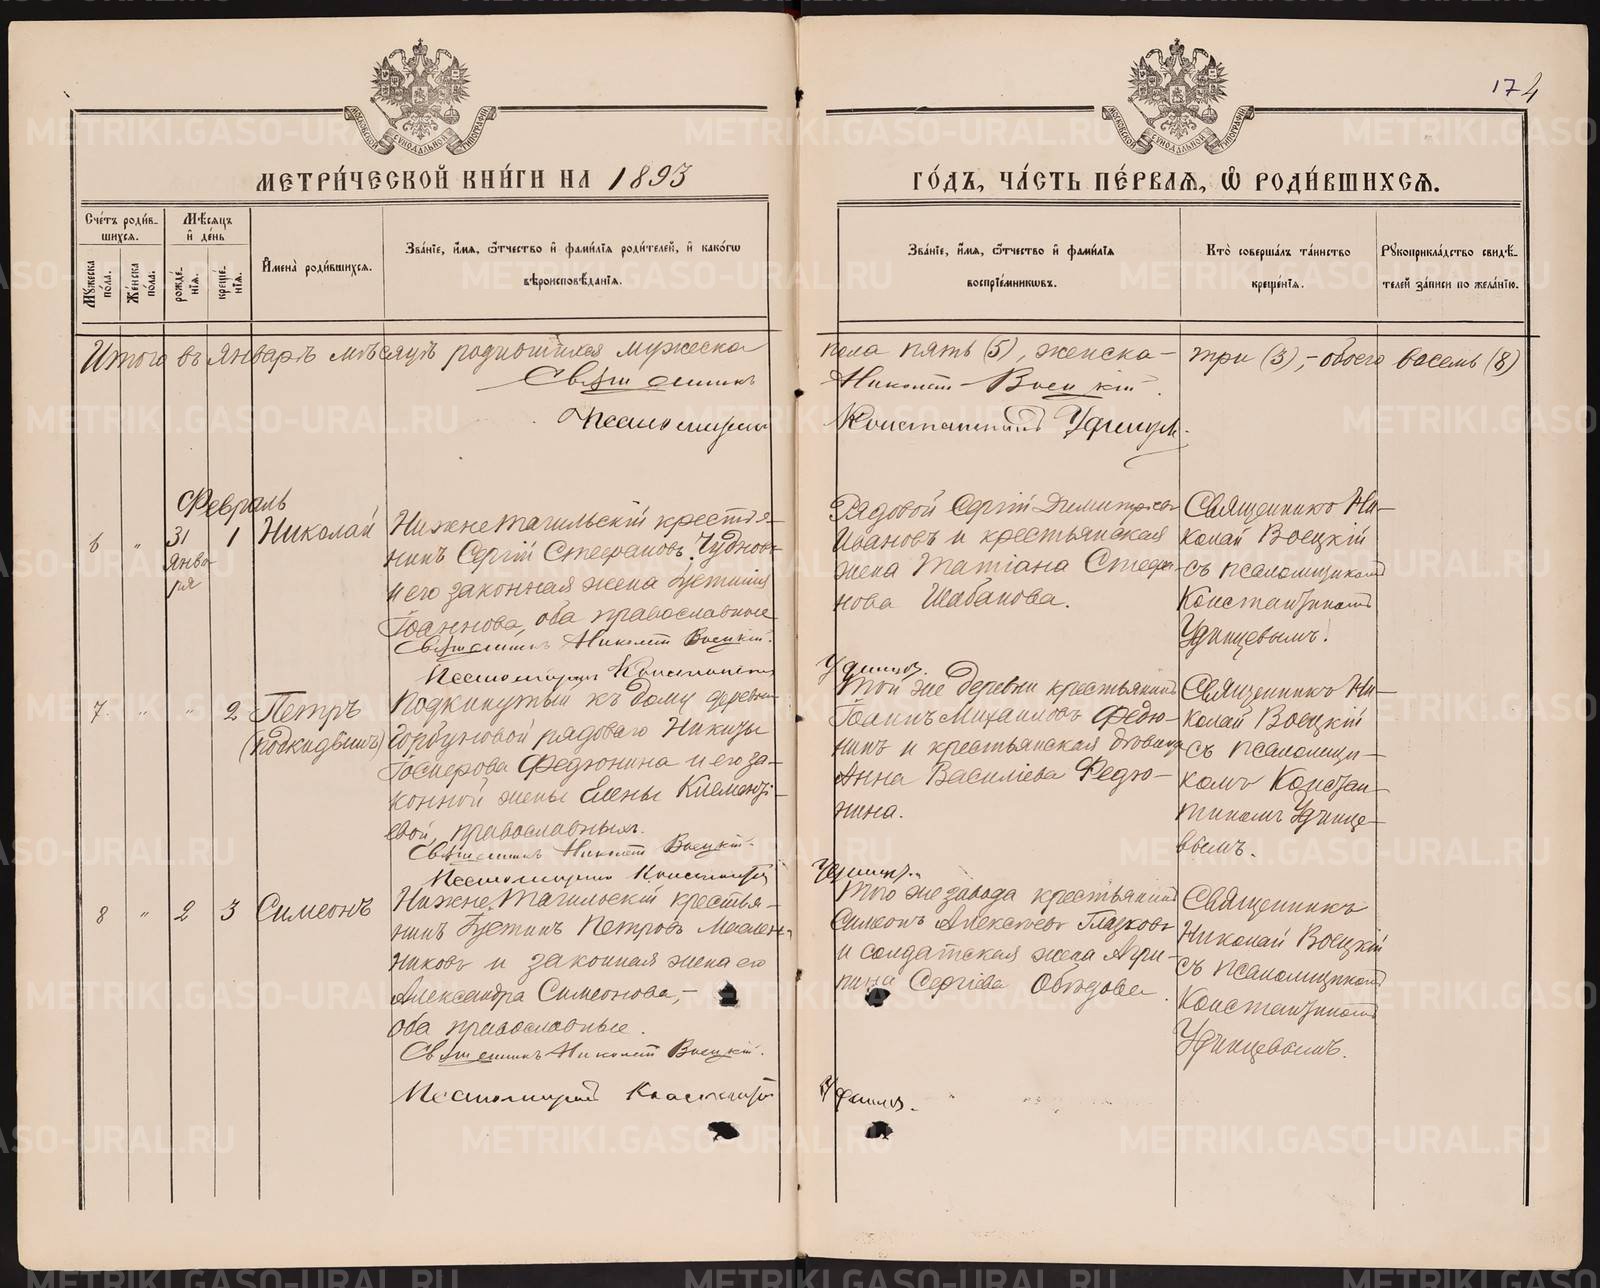 174
МЕТРИ́ЧЕСКОЙ КНИ́ГИ НА 1893
ГО́ДЪ, ЧА́СТЬ ПЕ́РВАЯ, Ѡ҆ РОДИ́ВШИХСЯ.
Сче́тъ роди́в-
шихся.
Мѣ́сяцъ
и҆ де́нь
Му́жеска по́ла.
Же́нска по́ла.
рожде́нїя.
креще́нїя.
И҆мена̀ роди́вшихся.
Зва́нїе, и҆́мя, ѻ҆́тчество и҆ фами́лїя роди́телей, и҆ како́гѡ
вѣроисповѣ́данїя.
Зва́нїе, и҆́мя, ѻ҆́тчество и҆ фами́лїя
воспрїе́мникѡвъ.
Кто̀ соверша́лъ та́инство
креще́нїя.
Рукоприкла́дство свидѣ́-
телей за́писи по жела́нїю.
Итого въ Январѣ мѣсяцѣ родившихся мужеска
пола пять (5), женска – три (3), – обоего восемь (8)
Священникъ Николай Воецкій.
Псаломщикъ Константинъ Удинцев.
Февраль
6 „ 31 Января 1 Николай
Нижнетагильскій крестья-
нинъ Сергій Стефановъ Чудновъ
и его законная жена Іустинія
Іоаннова, оба православные
Священникъ Николай Воецкій.
Псаломщикъ Константинъ Удинцев.
Рядовой Сергій Димитріевъ
Ивановъ и крестьянская
жена Татіана Стефа-
нова Шабанова.
Священникъ Ни-
колай Воецкій
съ псаломщикомъ
Константиномъ
Удинцевымъ.
7. „ „ 2 Петръ
(подкидышъ)
Подкинутый къ дому деревни
Горбуновой рядоваго Никиты
Федюнина и его за-
конной жены Елены Клементі-
евой, православныхъ.
Священникъ Николай Воецкій.
Псаломщикъ Константинъ
Той же деревни крестьянинъ
Іоаннъ Михаиловъ Федю-
нинъ и крестьянская вдовица
Анна Василіева Федю-
нина.
Удинцев.
Священникъ Ни-
колай Воецкій
съ псаломщи-
комъ Констан-
тиномъ Удинце-
вымъ.
8 „ 2 3 Симеонъ
Нижне Тагильскій крестья-
нинъ Іустинъ Петровъ Маслен-
никовъ и законная жена его
Александра Симеонова, –
оба православные.
Священникъ Николай Воецкій.
Псаломщикъ Константинъ
Того же завода крестьянинъ
Симеонъ Алексіевъ Глазковъ
и солдатская жена Агри-
пина Сергіева Объедова
Удинцев.
Священникъ
Николай Воецкій
съ псаломщикомъ
Константиномъ
Удинцевымъ.
METRIKI.GASO-URAL.RU